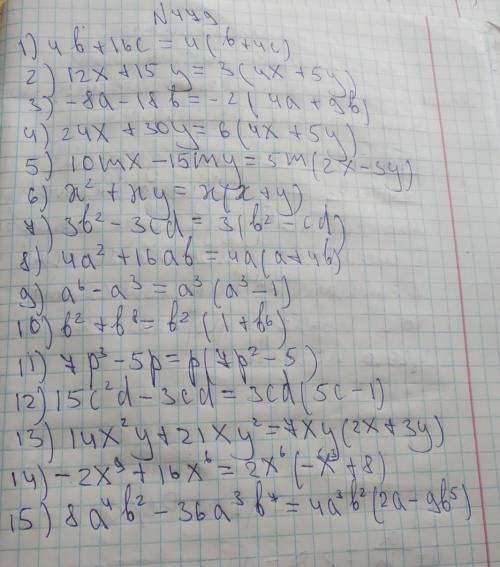 N479
1) 4b+16c = 4(b+4c)
2) 12x+15y = 3(4x+5y)
3) -8a-18b = -2(4a+9b)
4) 24x+30y = 6(4x+5y)
5) 10mx-15my = 5m(2x-3y)
6) x²+xy = x(x+y)
7) 3b²-3cd = 3(b²-cd)
8) 4a²+16ab = 4a(a+4b)
9) a⁶-a³ = a³(a³-1)
10) b²+b⁸ = b²(1+b⁶)
11) 7p³-5p = p(7p²-5)
12) 15c²d-3cd = 3cd(5c-1)
13) 14x²y+21xy² = 7xy(2x+3y)
14) -2x⁹+16x⁶ = 2x⁶(-x³+8)
15) 8a⁴b²-36a³b⁷ = 4a³b²(2a-9b⁵)